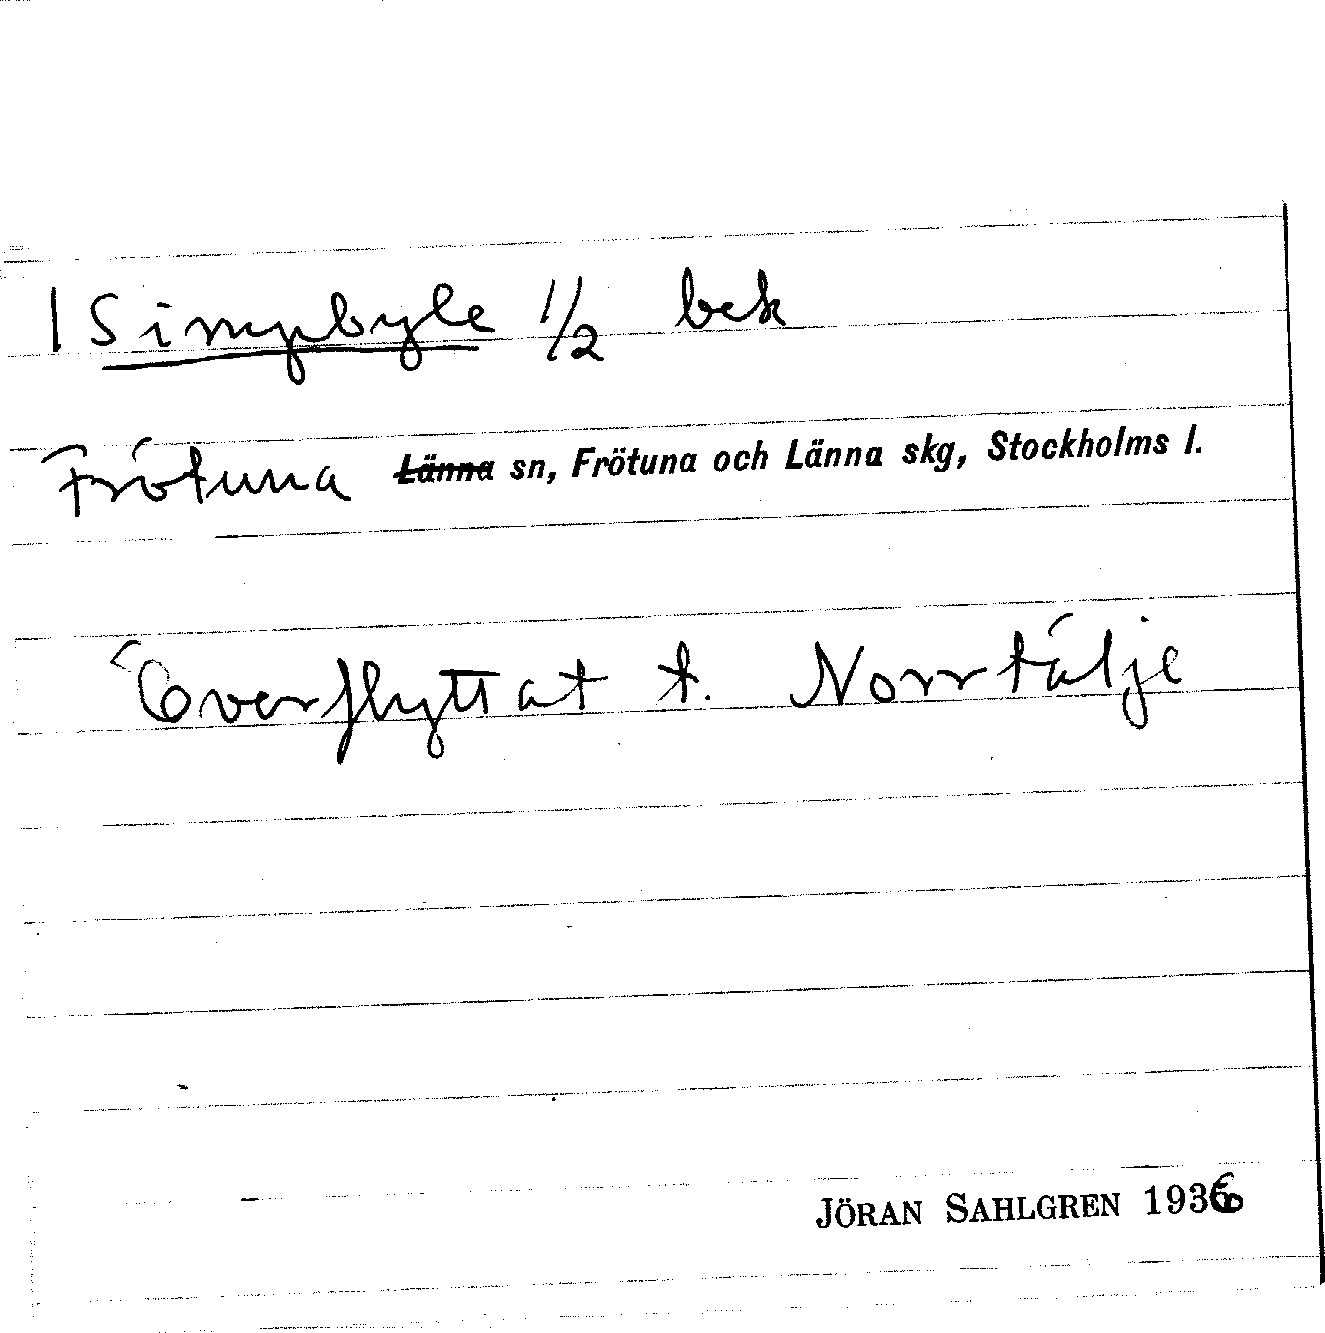 1 Simpbyle 1/2 bek
Frötuna Länna sn, Frötuna och Länna skg, Stockholms l.
Överflyttat t. Norrtälje
JÖRAN SAHLGREN 1936